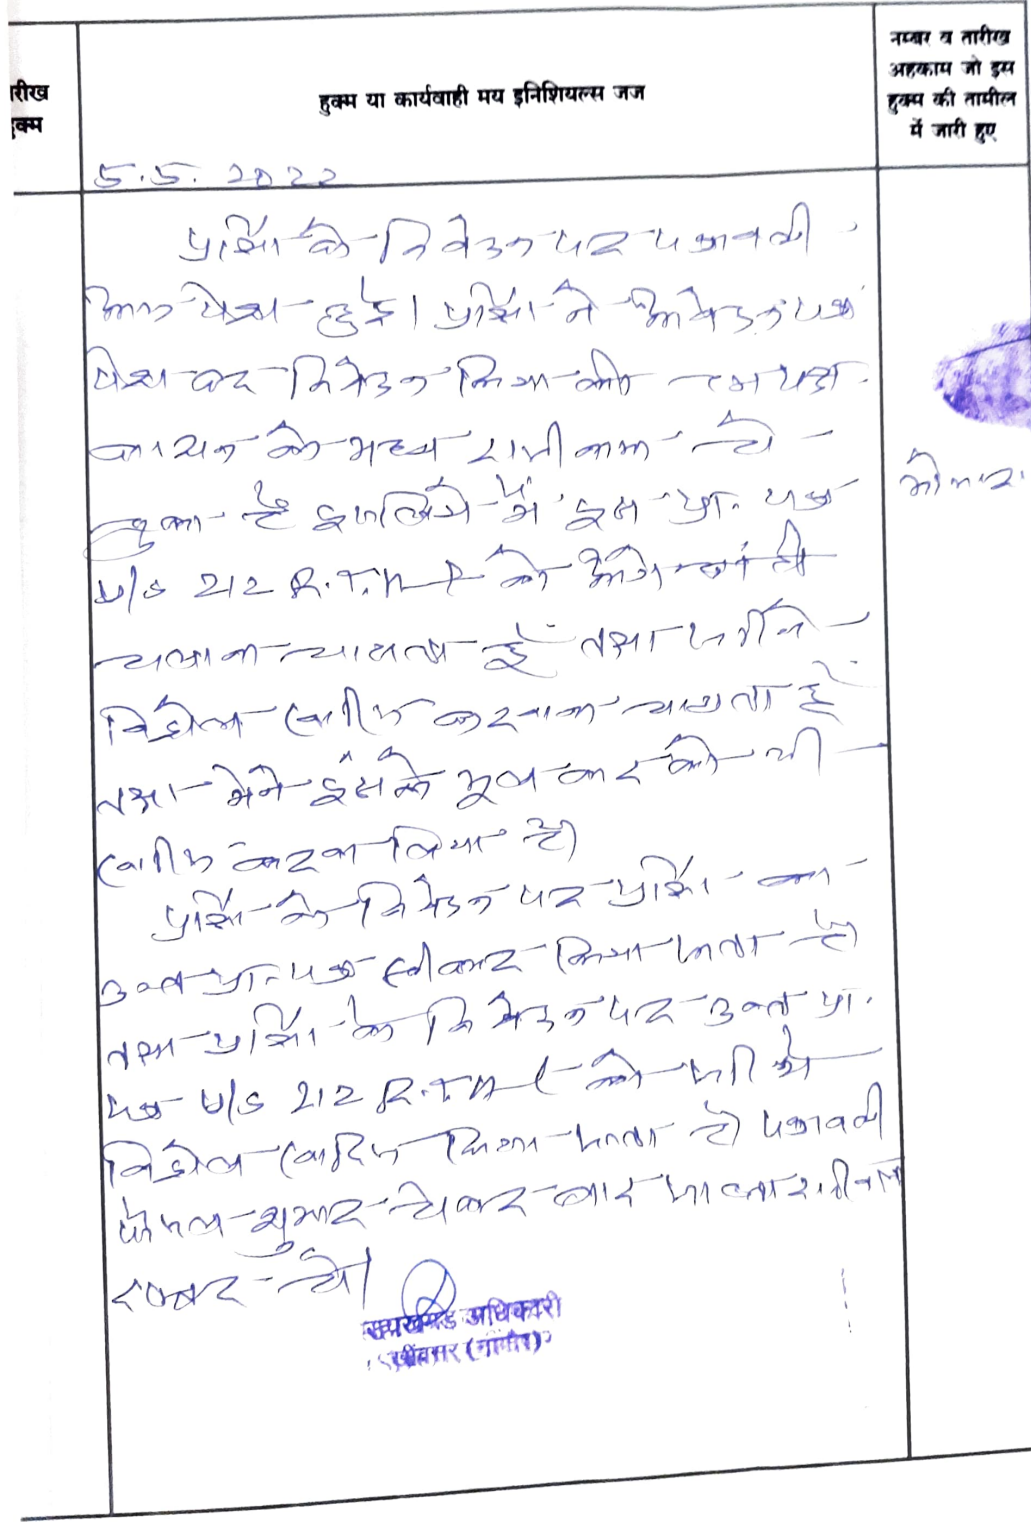 तारीख
हुक्म
हुक्म या कार्यवाही मय इनिशियल्स जज
नम्बर व तारीख
अहकाम जो इस
हुक्म की तामील
में जारी हुए
5.5.2022
प्रार्थी के निवेदन पर पत्रावली
आज पेश हुई। प्रार्थी ने आवेदन पत्र
पेश कर निवेदन किया की उभयपक्ष
के मध्य राजीनामा हो
चुका है इसलिये मैं इस प्रा. पत्र
U/S 212 R.T.A को आगे नहीं
चलाना चाहता हूँ तथा
विड्रोल खारीज करवाना चाहता हूँ
तथा मैने इसके मूल वाद को भी
खारीज करवा लिया है।
प्रार्थी के निवेदन पर प्रार्थी का
उक्त प्रा. पत्र स्वीकार किया जाता है
तथा प्रार्थी के निवेदन पर उक्त प्रा.
पत्र U/S 212 R.T.A को
विड्रोल खारिज किया जाता है पत्रावली
फैसल शुमार होकर बाद
नम्बर हो।
उपखण्ड अधिकारी
खींवसर (नागौर)